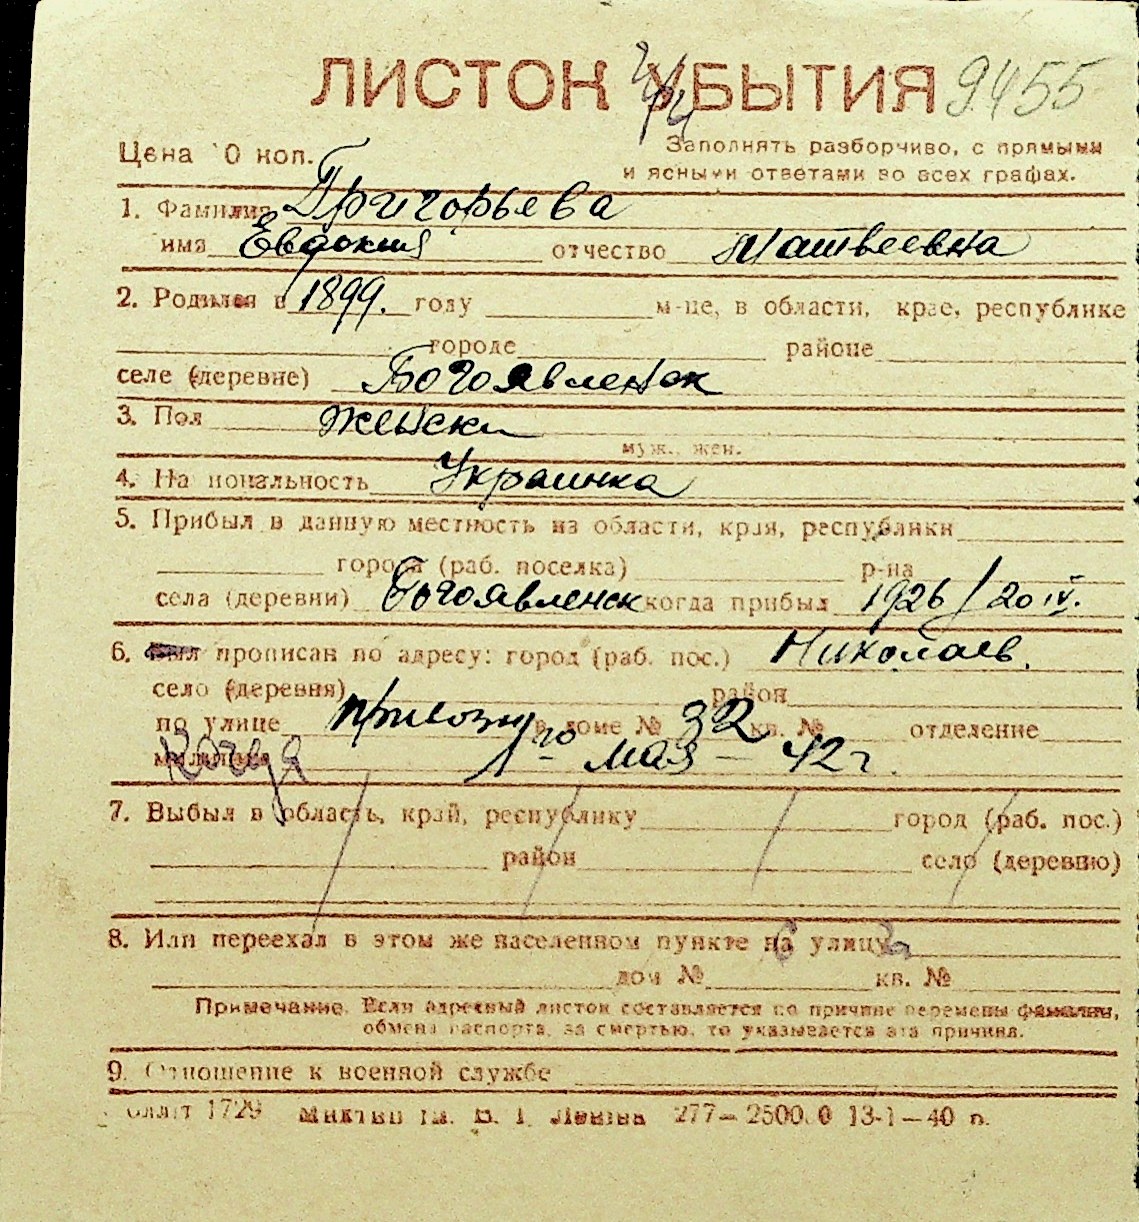 ЛИСТОК УБЫТИЯ 9455
Цена 10 коп.
Заполнять разборчиво, с прямыми
и ясными ответами во всех графах.
1. Фамилия Григорьева
имя Евдокия отчество Матвеевна
2. Родился в 1899. году м-це, в области, крае, республике
городе районе
селе (деревне) Богоявленск
3. Пол женски
муж., жен.
4. Национальность Украинка
5. Прибыл в данную местность из области, края, республики
города (раб. поселка) р-на
села (деревни) Богоявленск когда прибыл 1926/20 IV.
6. Был прописан по адресу: город (раб. пос.) Николаев.
село (деревня) район
по улице в доме № 32 кв. № отделение
милиции Когда 1го мая - 42 г.
7. Выбыл в область, край, республику город (раб. пос.)
район село (деревню)
8. Или переехал в этом же населенном пункте на улицу
дом № кв. №
Примечание. Если адресный листок составляется по причине перемены фамилии,
обмена паспорта, за смертью, то указывается эта причина.
9. Отношение к военной службе
1729 277—2500.0 13-1—40 п.